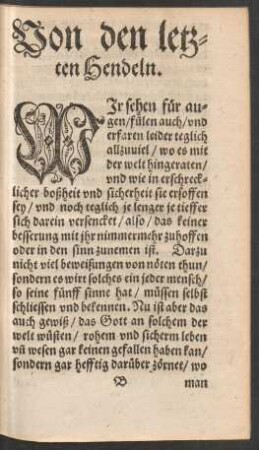 Von den letz-
ten Hendeln.
WJr sehen für au-
gen/fülen auch/vnd
erfaren leider teglich
allzuuiel/wo es mit
der welt hingeraten/
vnd wie in erschreck-
licher boßheit vnd sicherheit sie ersoffen
sey/vnd noch teglich je lenger je tieffer
sich darein versencket/also/das keiner
besserung mit jhr nimmermehr zuhoffen
oder in den sinn zunemen ist. Darzu
nicht viel beweißungen von nöten thun/
sondern es wirt solches ein jeder mensch/
so seine fünff sinne hat/müssen selbst
schliessen vnd bekennen. Nu ist aber das
auch gewiß/das Gott an solchem der
welt wüsten/rohem vnd sicherm leben
vñ wesen gar keinen gefallen haben kan/
sondern gar hefftig darüber zörnet/wo
B man